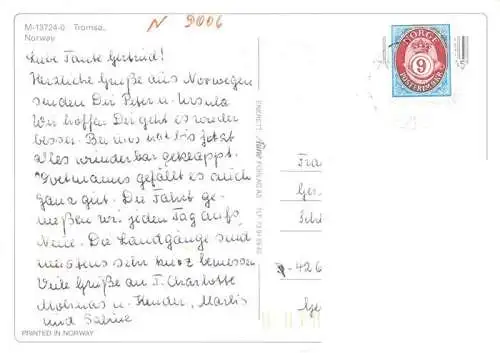 M-13724-0 Tromsø,
Norway
N 9006
Liebe Tante Gertrud!
Herzliche Grüße aus Norwegen
senden Dir Peter u. Ursula
Wir hoffen Dir geht es wieder
besser. Bei uns hat bis jetzt
alles wunderbar geklappt.
gefällt es auch
ganz gut. Die Fahrt ge-
nießen wir jeden Tag aufs
Neue. Die Landgänge sind
meistens sehr kurz bemessen
Viele Grüße an T. Charlotte
u. Kinder,
und Sabine
PRINTED IN NORWAY
ENERETT: Aune FORLAG AS
NORGE
9
POSTFRIMERKE
Ger
-426
Ge